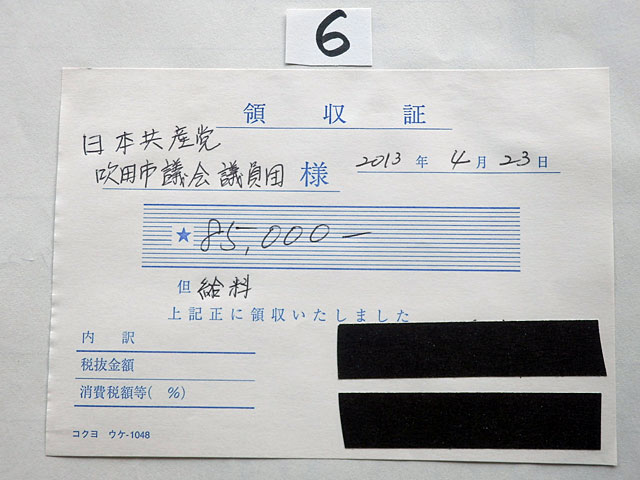 6
領収証
日本共産党
吹田市議会議員団 様
2013年4月23日
★85,000—
但 給料
上記正に領収いたしました
内訳
税抜金額
消費税額等( %)
コクヨ ウケ-1048